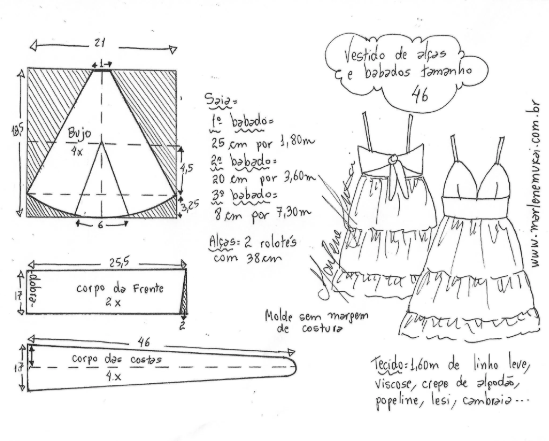 21
1
18,5
Bojo
4x
4,5
3,25
6
25,5
17
dobra
corpo da frente
2x
2
46
17
corpo das costas
4x
Saia:
1º babado:
25 cm por 1,80m
2º babado:
20 cm por 3,60m
3º babado:
8 cm por 7,30m
Alças: 2 rolotês
com 38cm
Vestido de alças
e babados tamanho
46
Marlene Mukai
Molde sem margem
de costura
Tecido: 1,60m de linho leve,
viscose, crepo de algodão,
popeline, lesi, cambraia...
www.marlenemukai.com.br